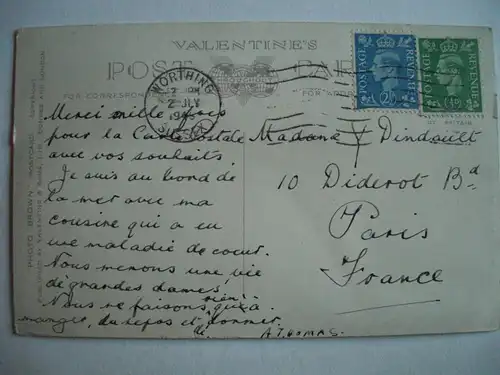 VALENTINE'S
POST CARD
FOR CORRESPONDENCE
FOR ADDRESS
POSTAGE REVENUE 2½D
POSTAGE REVENUE ½D
WORTHING
2 JLY
SUSSEX
Merci mille fois
pour la Carte Postale
avec vos souhaits.
Je suis au bord de
la mer avec ma
cousine qui a eu
une maladie de coeur.
Nous menons une vie
de grandes dames,
Nous ne faisons rien qu'à
manger, du repos et de dormir.
Madame Dindault
10 Diderot Bd
Paris
France
PHOTO BROWN POSTCARD